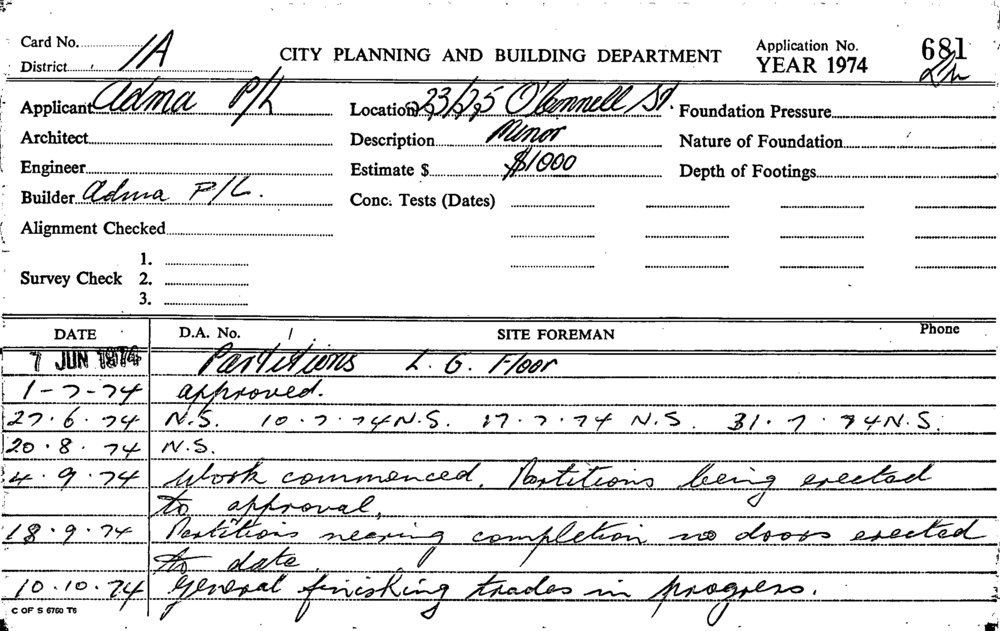 Card No. 1A
District
CITY PLANNING AND BUILDING DEPARTMENT
Application No. 681
YEAR 1974
Applicant Adma P/L
Location 23/25 O'Connell St.
Foundation Pressure
Architect
Description Minor
Nature of Foundation
Engineer
Estimate $ $1000
Depth of Footings
Builder Adma P/L.
Conc. Tests (Dates)
Alignment Checked
Survey Check 1.
2.
3.
DATE D.A. No. / SITE FOREMAN Phone
7 JUN 1974 Partitions L. G. Floor
1-7-74 approved.
27.6.74 N.S. 10.7.74 N.S. 17.7.74 N.S. 31.7.74 N.S.
20.8.74 N.S.
4.9.74 Work commenced. Partitions being erected
to approval.
18.9.74 Partitions nearing completion no doors erected
to date.
10.10.74 General finishing trades in progress.
C OF S 6760 T6